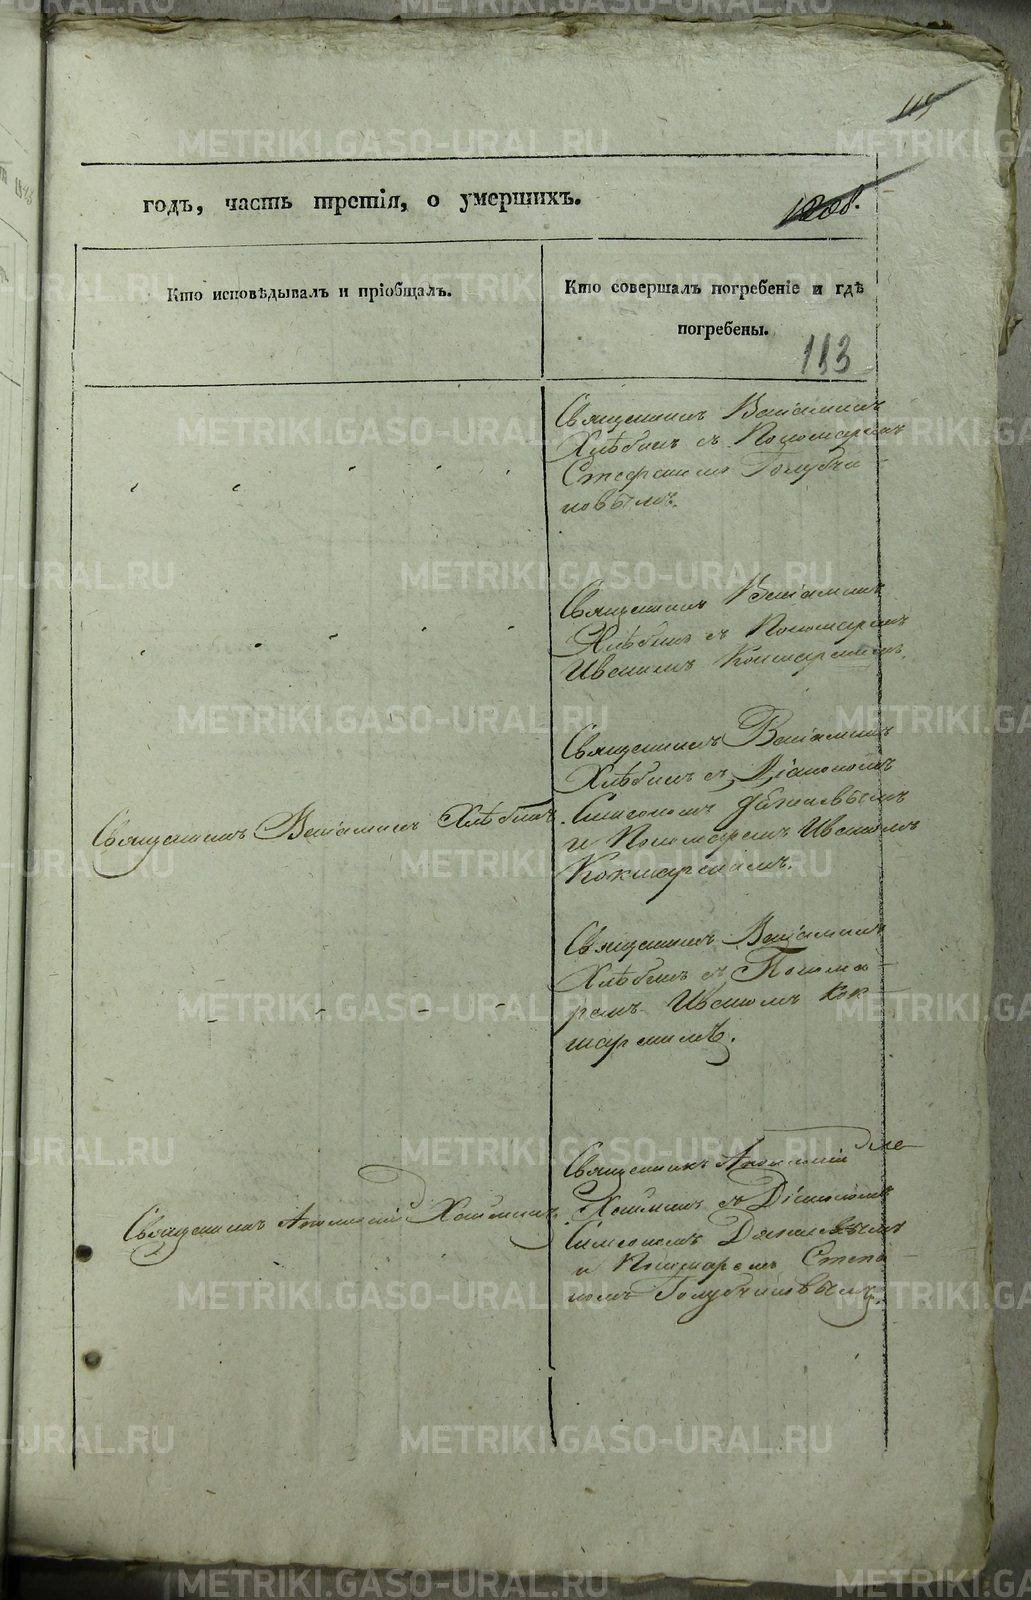 годъ, часть третія, о умершихъ.
Кто исповѣдывалъ и пріобщалъ.
Кто совершалъ погребеніе и гдѣ
погребены.
113
Священникъ Веніаминъ
Хлѣбинъ съ Пономаремъ
Стефаномъ Голубчи-
ковымъ.
Священникъ Веніаминъ
Хлѣбинъ съ Пономаремъ
Иваномъ Кокшарскимъ.
Священникъ Веніаминъ Хлѣбинъ.
Священникъ Веніаминъ
Хлѣбинъ съ Діакономъ
Симеономъ
и Пономаремъ Иваномъ
Кокшарскимъ.
Священникъ Веніаминъ
Хлѣбинъ съ Понома-
ремъ Иваномъ Кок-
шарскимъ.
Священникъ
Священникъ
съ Діакономъ
Симеономъ
и Пономаремъ Стефа-
номъ Голубчиковымъ.
METRIKI.GASO-URAL.RU